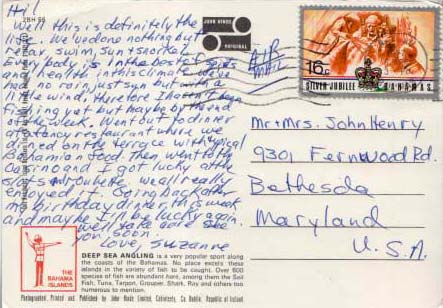 Hi!
Well this is definitely the
life. We've done nothing but
relax, swim, sun & snorkel.
Everybody is in the best of spirits
and health in this climate. We've
had no rain, just sun and a
the wind, therefore I haven't been
fishing yet but maybe by the end
of the week. Went out to dinner
at a fancy restaurant where we
dined on the terrace with typical
Bahamian food. Then went to the
Casino and I got lucky at the
slots and roulette. We all really
enjoyed it. Going back after
my birthday dinner this week
and maybe I'll be lucky again.
We'll take care see
you soon.
Love, Suzanne
2BH 55
JOHN HINDE
ORIGINAL
AIR
MAIL
16c
SILVER JUBILEE BAHAMAS
Mr + Mrs. John Henry
9301 Fernwood Rd.
Bethesda
Maryland
U.S.A.
THE
BAHAMA
ISLANDS
DEEP SEA ANGLING is a very popular sport along
the coasts of the Bahamas. No place excels these
islands in the variety of fish to be caught. Over 600
species of fish are abundant here, among them the Sail
Fish, Tuna, Tarpon, Grouper, Shark, Ray and others too
numerous to mention.
Photographed, Printed and Published by John Hinde Limited, Cabinteely, Co. Dublin, Republic of Ireland